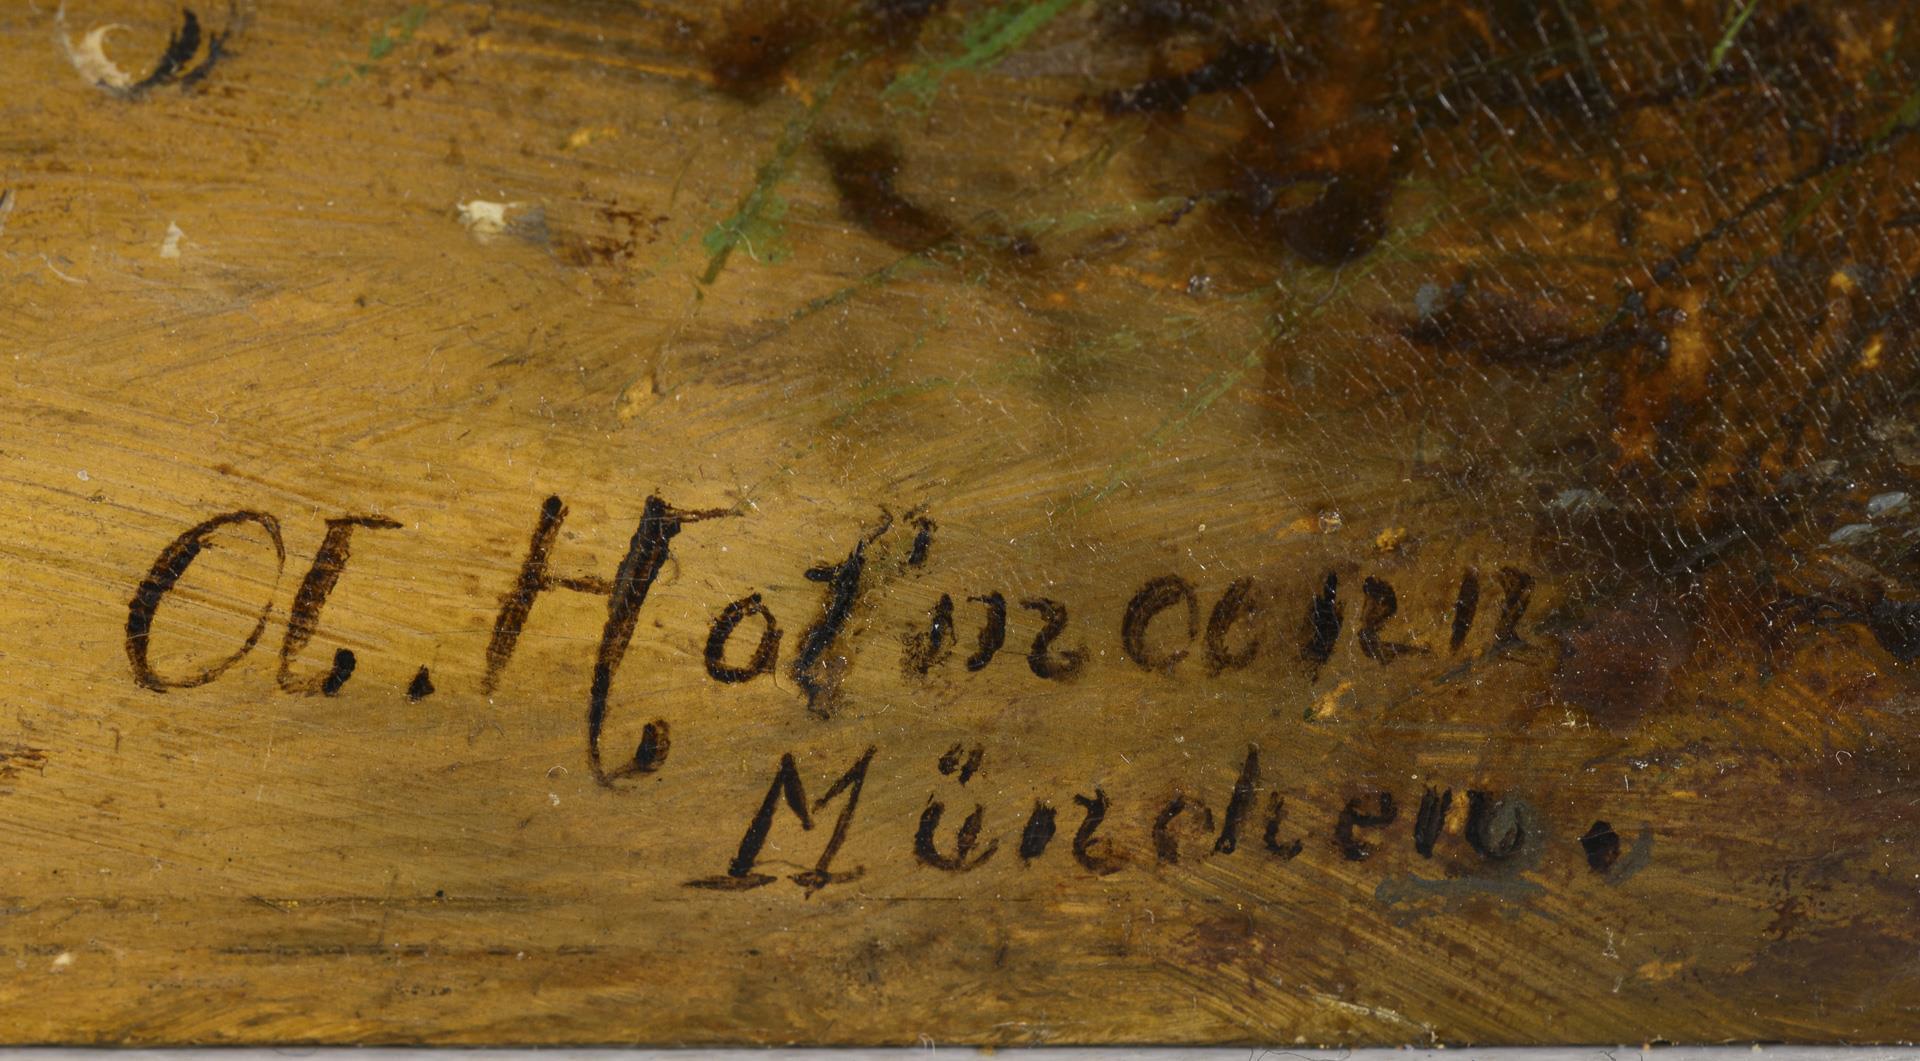 A. Hofmann
München.